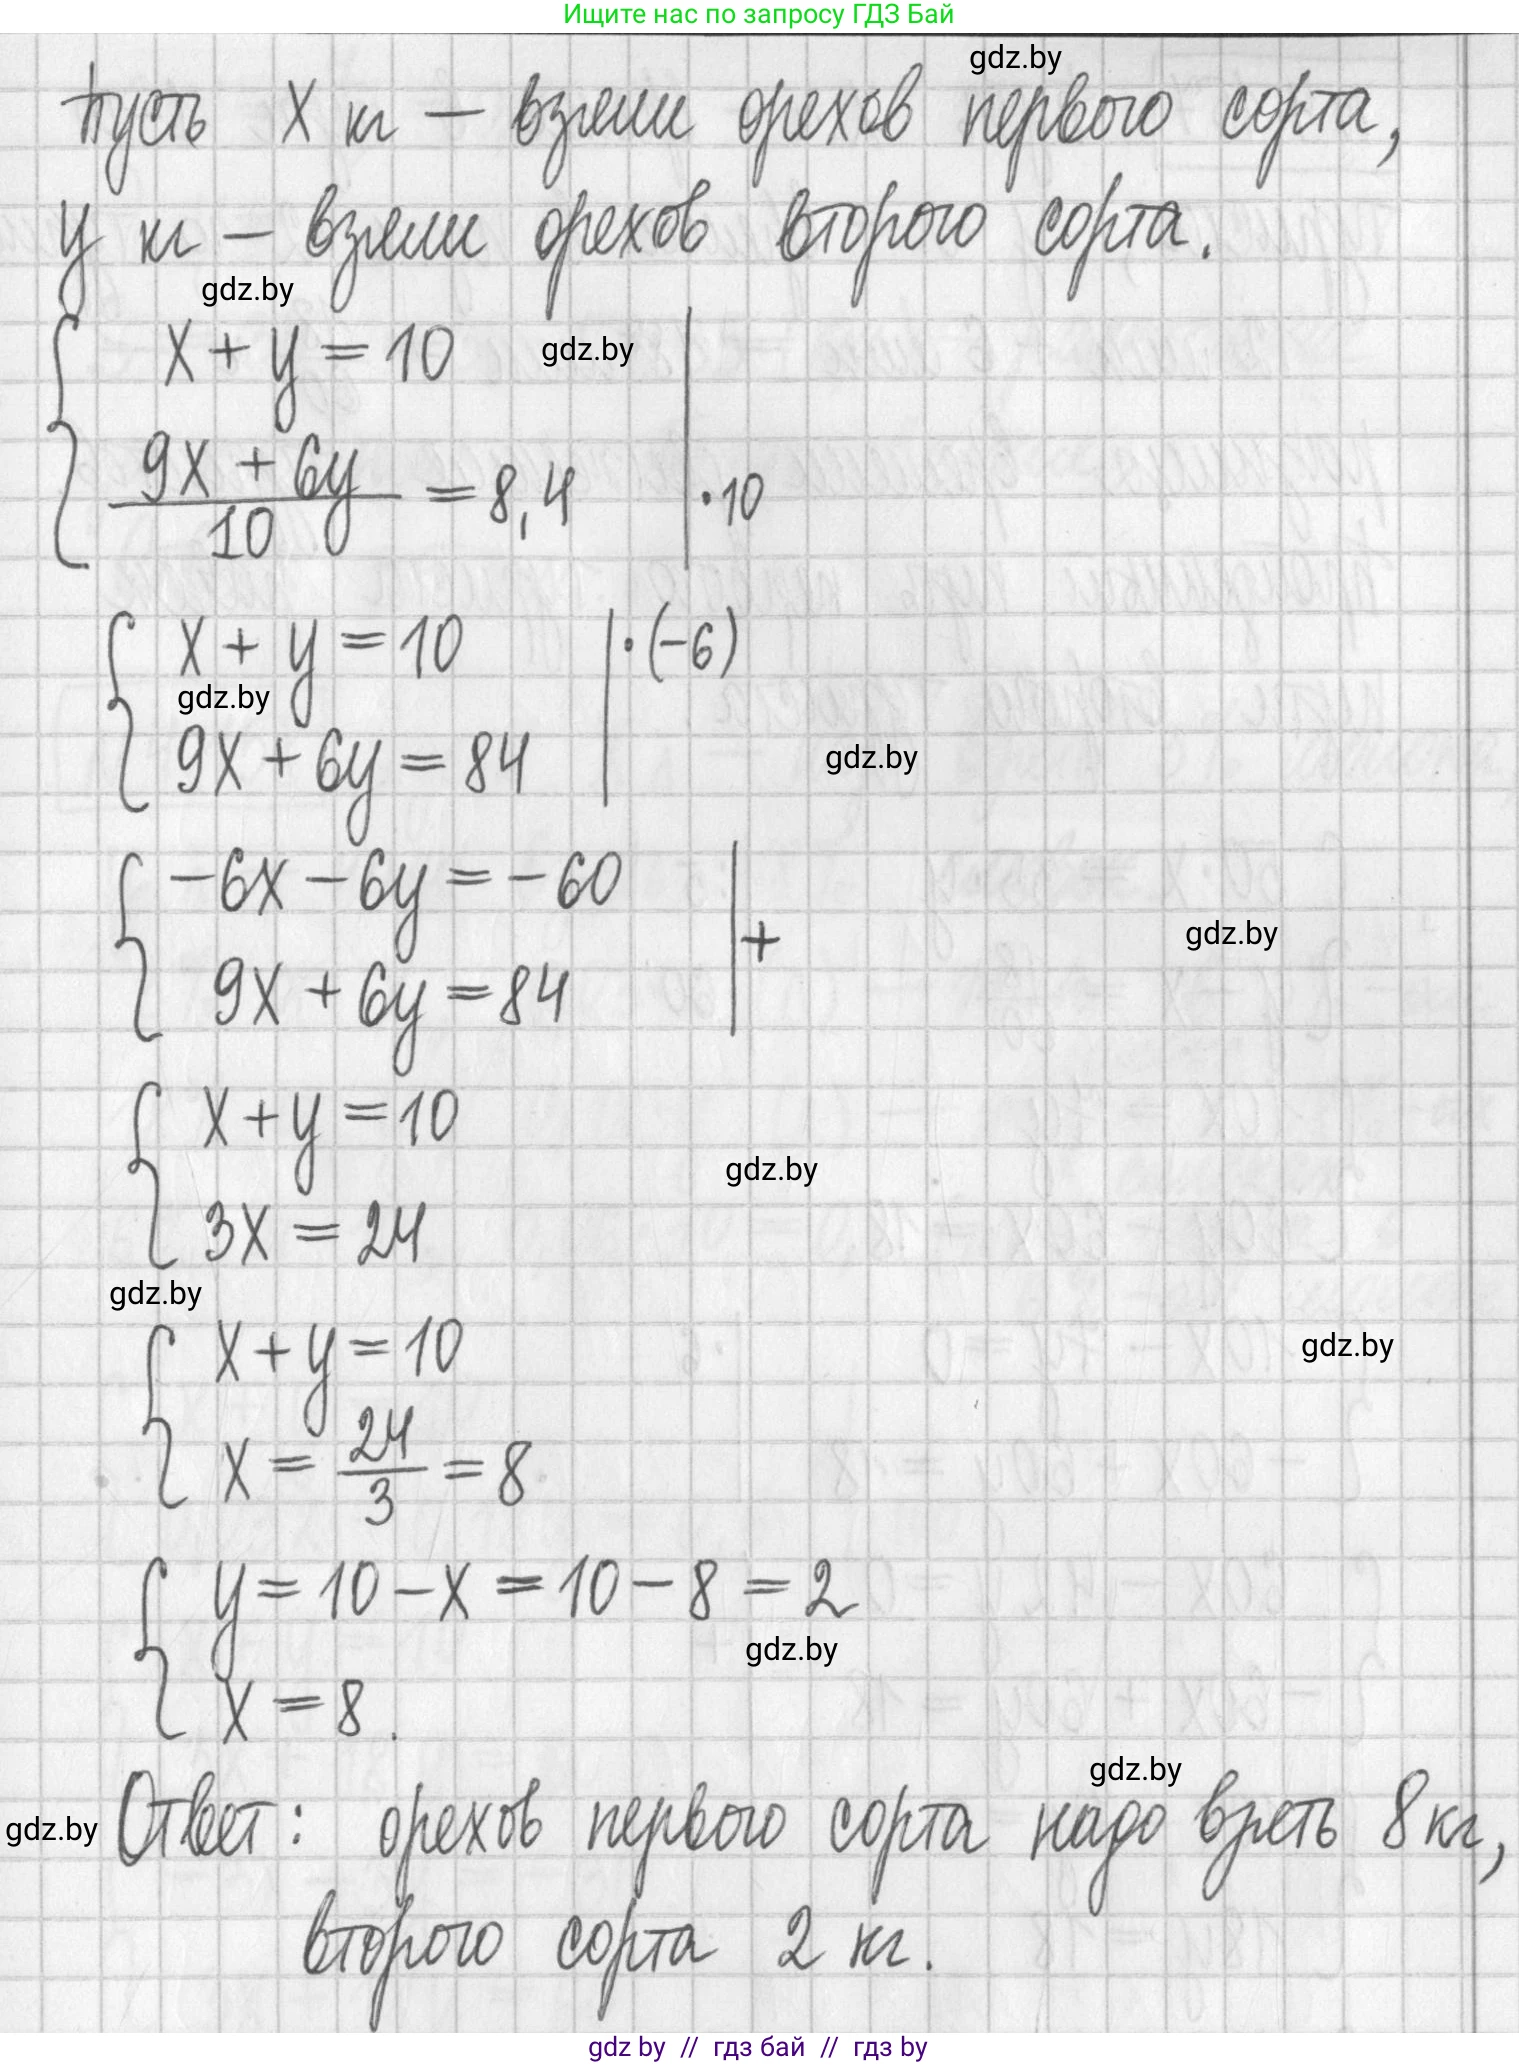 Ищите нас по запросу ГДЗ Бай
gdz.by
Пусть x кг – взяли орехов первого сорта,
y кг – взяли орехов второго сорта.
gdz.by
x + y = 10
gdz.by
9x + 6y
10
= 8,4
·10
x + y = 10
·(-6)
gdz.by
9x + 6y = 84
gdz.by
-6x - 6y = -60
+
gdz.by
9x + 6y = 84
x + y = 10
gdz.by
3x = 24
gdz.by
x + y = 10
gdz.by
x = 24/3 = 8
y = 10 - x = 10 - 8 = 2
gdz.by
x = 8.
gdz.by
gdz.by
Ответ: орехов первого сорта надо взять 8 кг,
второго сорта 2 кг.
gdz by // гдз бай // гдз by